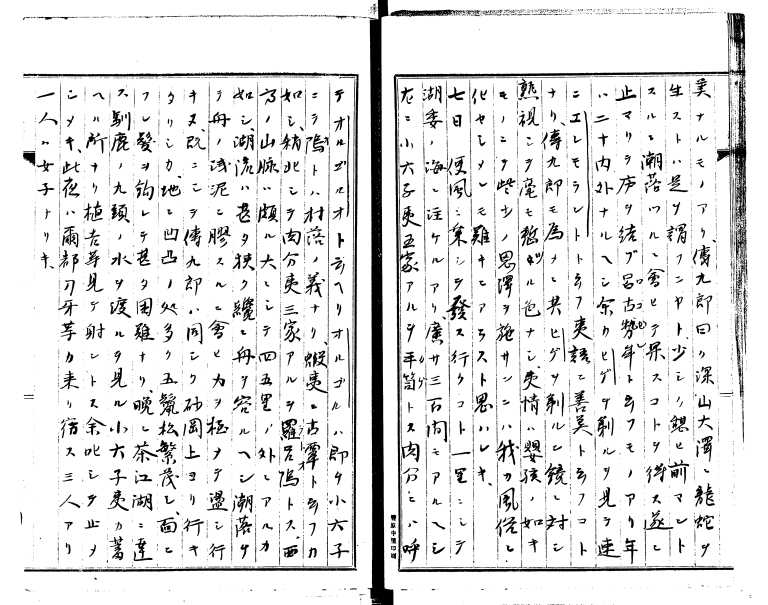 美ナルモノアリ、傳九郎曰ク深山大澤ニ龍蛇ヲ
生ストハ是ヲ謂フニヤト、少シク憩ヒ前マント
スルニ潮落ツルニ會ヒテ果スコトヲ得ス遂ニ
止マリテ庐ヲ結ブ 年ト云フモノアリ年
ハ二十内外ナルヘシ余カヒゲヲ剃ルヲ見テ連
ニエレモラントト云フ夷語ニ善美ト云フコト
ナリ、傳九郎モ為メニ其ヒゲヲ剃ルニ鏡ニ対シ
熟視シテ毫モ愁ル色ナシ夷情ハ嬰孩ノ如キ
モノニテ些少ノ恩澤ヲ施サンニハ我カ風俗ニ
化セシメンモ難キニアラスト思ハレキ、
七日 便風ニ乗シテ發ス行クコト一里ニシテ
湖委ノ海ニ注ケルアリ廣サ三百間モアルヘシ
左ニ小六子夷五家アルヲ年筒トス肉分ニハ呼
テオルゴルオトト云ヘリオルゴルハ即チ小六子
ニテ鳴トハ村落ノ義ナリ、蝦夷ニ古潭ト云フカ
如シ、稍北シテ肉分夷三家アルヲ羅呂鳴トス、西
方ノ山脉ハ頗ル大ニシテ四五里ノ外ニアルカ
如シ湖流ハ甚タ狹ク纔ニ舟ヲ容ルヘシ潮落チ
テ舟ノ浅泥ニ膠スルニ會ヒ力ヲ極メテ盪シ行
キヌ既ニシテ傳九郎ハ同シク砂岡上ヨリ行キ
タリシカ、地ニ凹凸ノ処多ク五鬣松繁茂シ、面ニ
フレ髮ヲ鈎シテ甚タ困難ナリ、晩ニ茶江湖ニ達
ス馴鹿ノ九頭ノ水ヲ渡ルヲ見ル小六子夷カ蓄
ヘル所ナリ植吉等見テ射ントス余叱シテ止メ
シメキ、此夜ハ爾部刀牙等カ来リ宿ス三人アリ
一人ハ女子ナリキ、